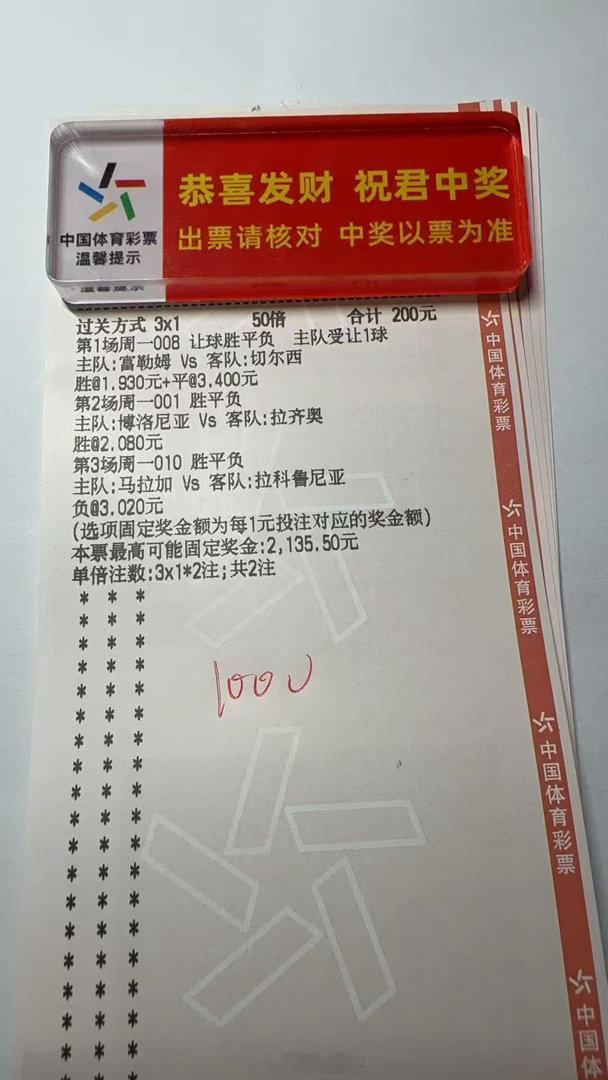 恭喜发财 祝君中奖
出票请核对 中奖以票为准
中国体育彩票
温馨提示
过关方式 3x1 50倍 合计 200元
第1场周一008 让球胜平负 主队受让1球
主队:富勒姆 Vs 客队:切尔西
胜@1.930元+平@3.400元
第2场周一001 胜平负
主队:博洛尼亚 Vs 客队:拉齐奥
胜@2.080元
第3场周一010 胜平负
主队:马拉加 Vs 客队:拉科鲁尼亚
负@3.020元
(选项固定奖金额为每1元投注对应的奖金额)
本票最高可能固定奖金:2,135.50元
单倍注数:3x1*2注;共2注
中国体育彩票
中国体育彩票
中国体育彩票
中国体